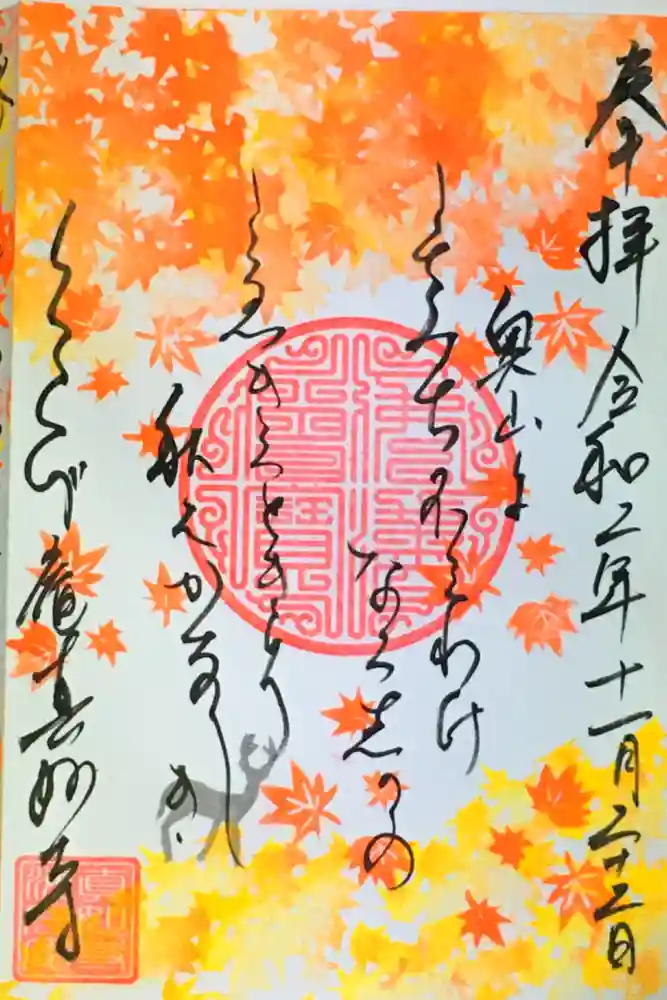 奉拝 令和二年十一月二十二日
奥山に
もみちふみわけ
なく志かの
こゑきくときそ
秋はかなしき
庵 真妙寺